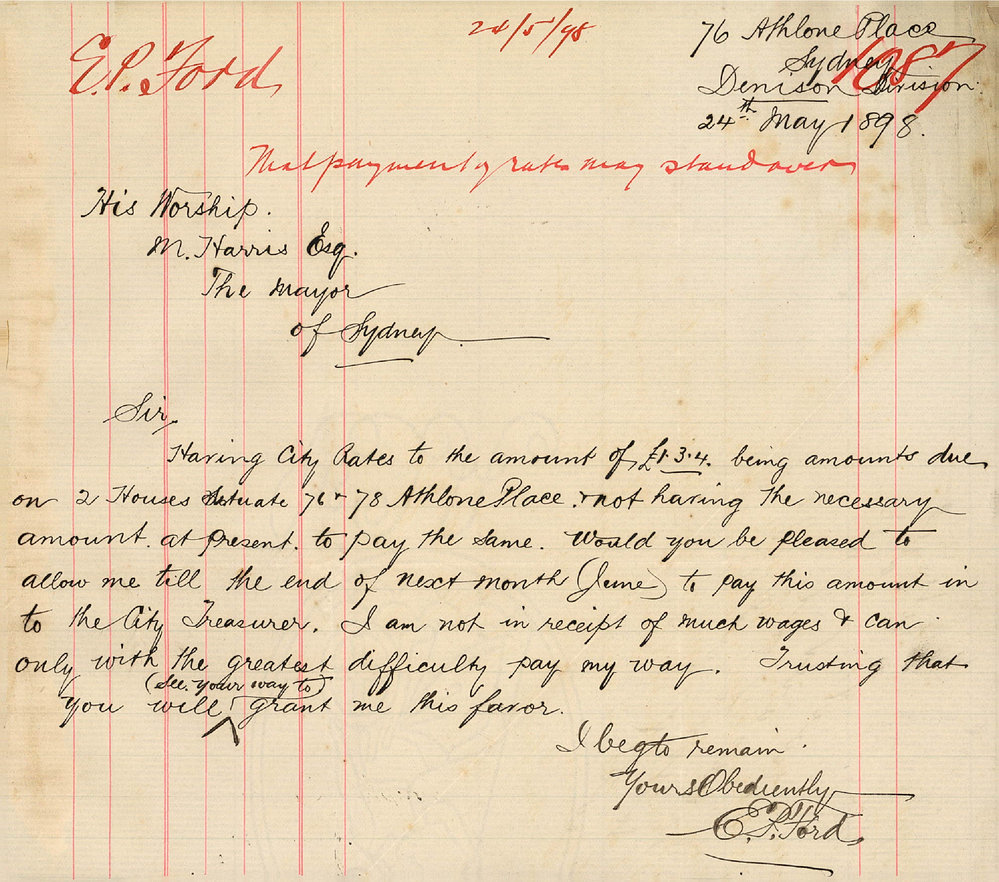 E.P. Ford
24/5/98
1087
76 Athlone Place
Sydney
Denison Division.
24th May 1898.
That payment of rates may stand over
His Worship.
M. Harris Esq.
The Mayor
of Sydney.
Sir,
Having City Rates to the amount of £1.3.4. being amounts due
on 2 Houses situate 76 & 78 Athlone Place & not having the necessary
amount. at present. to pay the same. Would you be pleased to
allow me till the end of next month (June) to pay this amount in
to the City Treasurer. I am not in receipt of much wages & can
only with the greatest difficulty pay my way. Trusting that
(see your way to)
you will grant me this favor.
I beg to remain.
Yours Obediently
E.P. Ford.